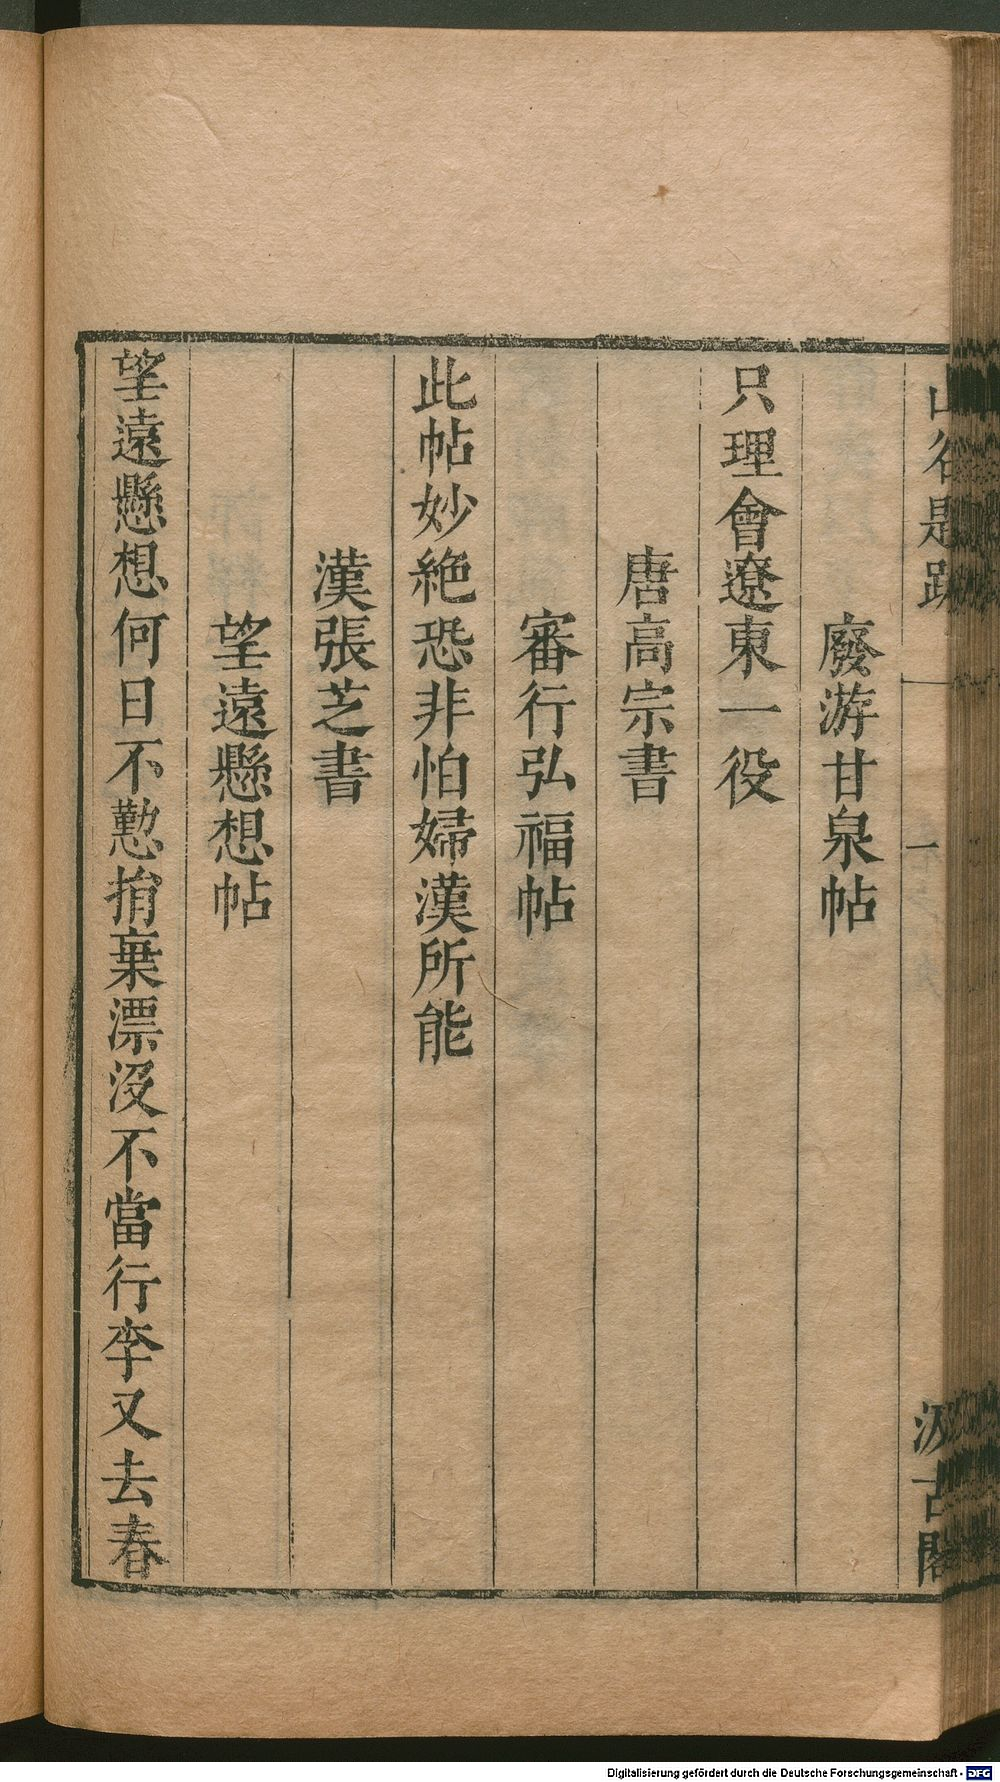 山谷題跋 一 一 汲古閣
廢游甘泉帖
只理會遼東一役
唐高宗書
審行弘福帖
此帖妙絶恐非怕婦漢所能
漢張芝書
望遠懸想帖
望遠懸想何日不懃捐棄漂没不當行李又去春
Digitalisierung gefördert durch die Deutsche Forschungsgemeinschaft - DFG